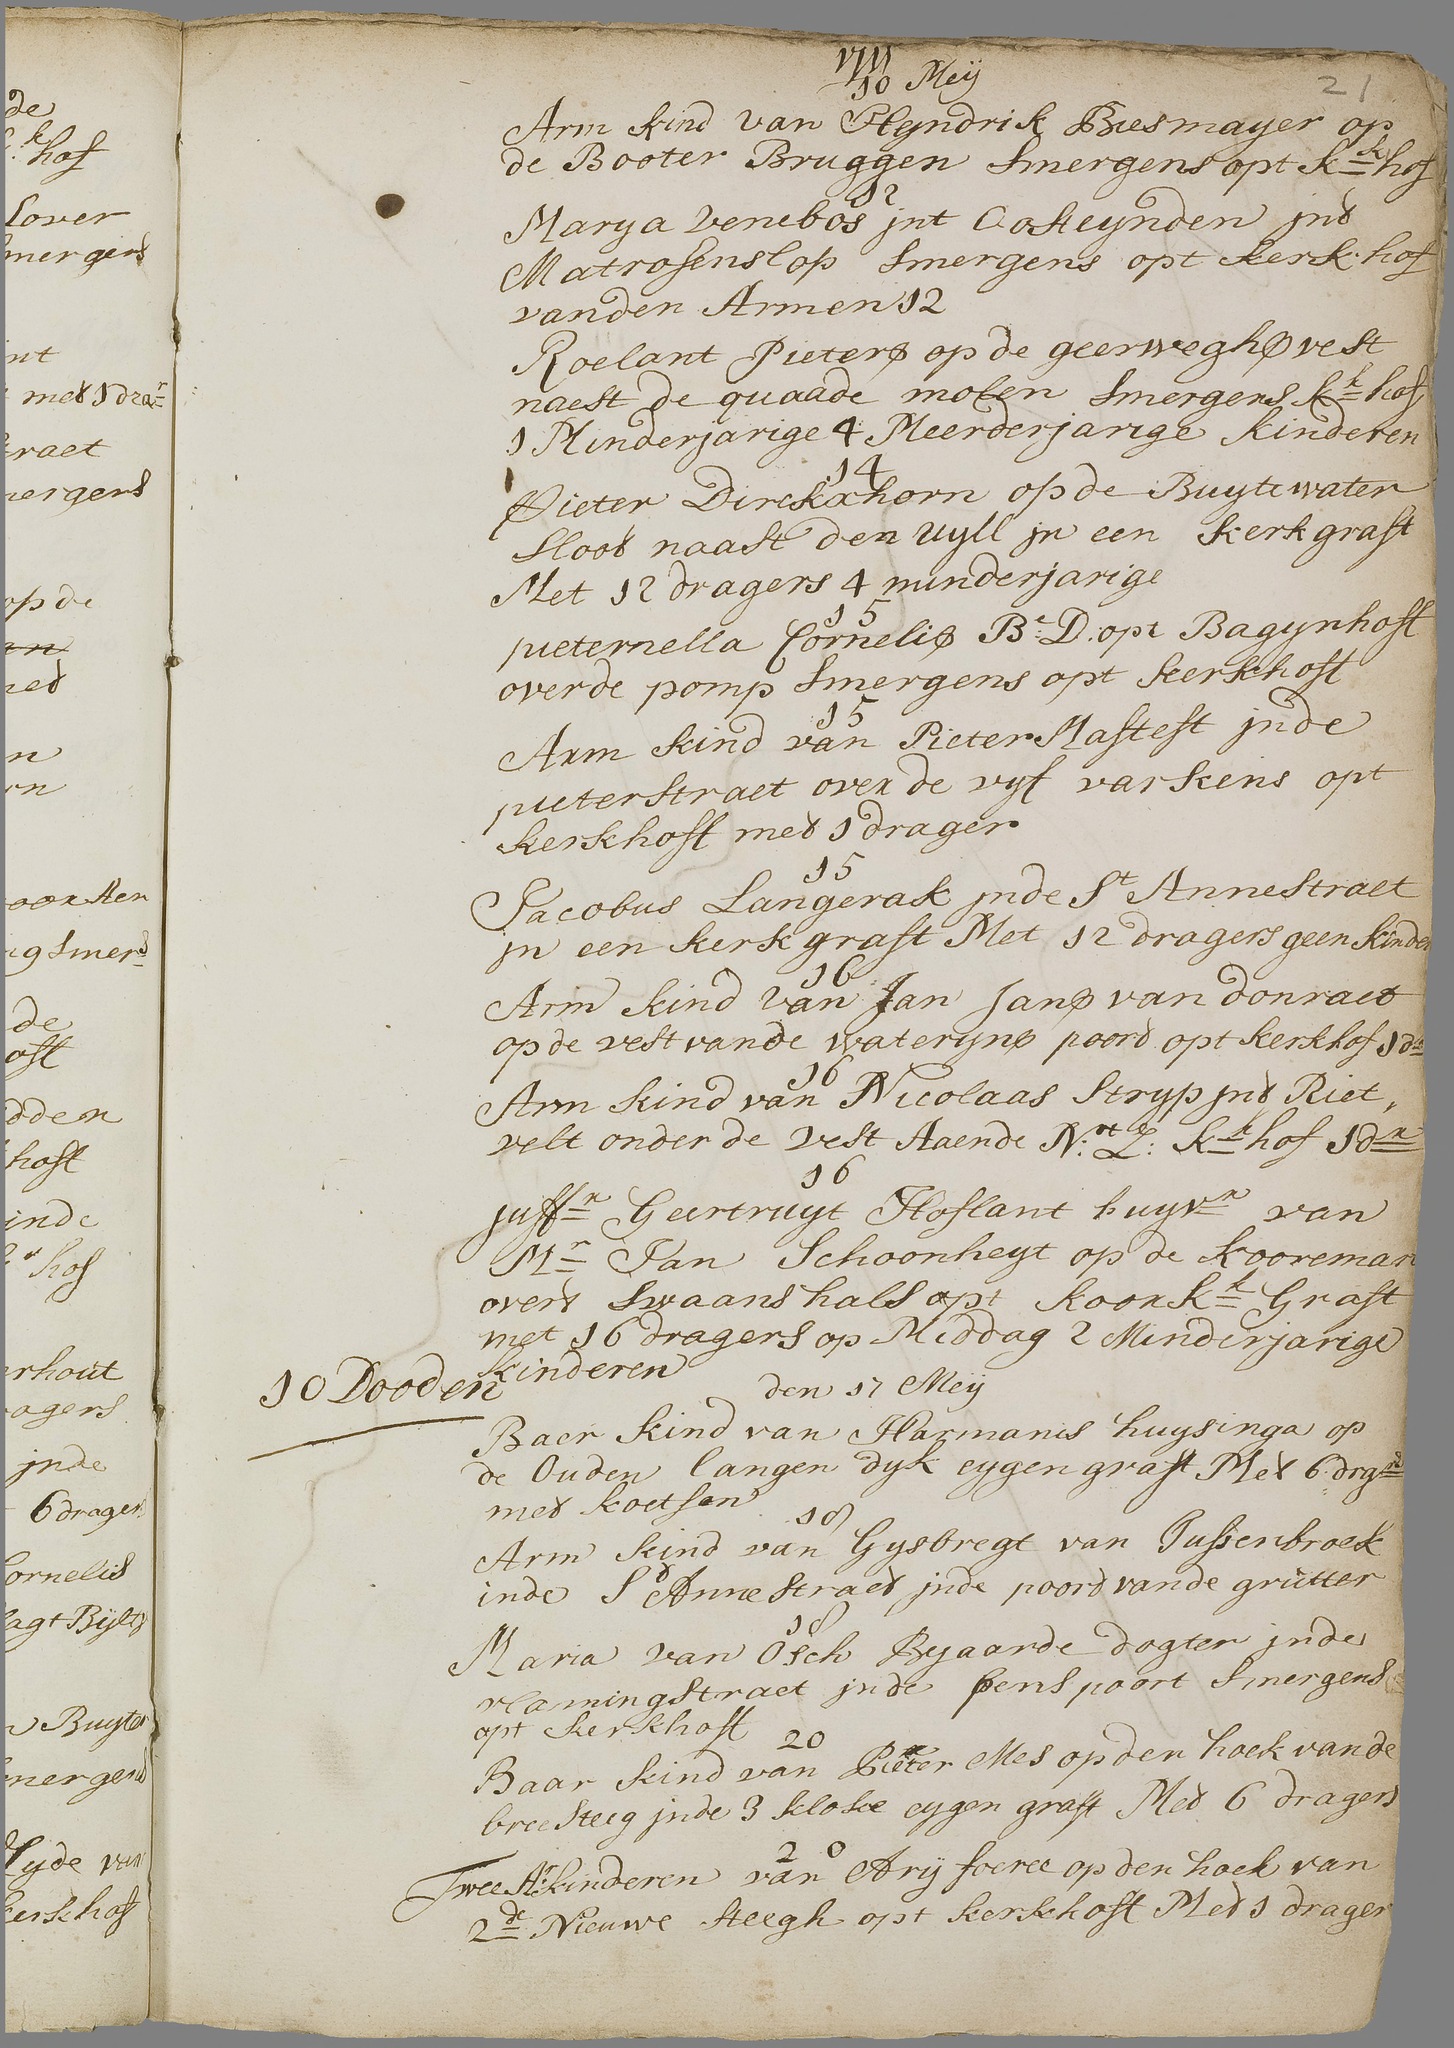 21
10 Meij
Arm kind van Heyndrik Biesmayer op
de Booter Bruggen Smergens opt kk hof
12
Marya venebos jnt Oosteynden jnt
Matrosenslop Smergens opt kerk hof
vanden Armen 12
Roelant Pieters op de geerweghs vest
naest de quaade molen Smergens kk hof
1 Minderjarige 4 Meerderjarige kinderen
14
Pieter Dirckxhorn op de Buytewater
Sloot naast den uyll jn een kerk graft
Met 12 dragers 4 minderjarige
15
pieternella Cornelis Be: D. opt Bagynhoff
over de pomp Smergens opt kerkhoff
15
Arm kind van Pieter Mastest jnde
pieterstraet over de vyf varkens opt
kerkhoff met 1 drager
15
Jacobus Langerak jnde St Annestraet
jn een kerk graft Met 12 dragers geen kinder
16
Arm kind van Jan Jans van donraet
op de vest vande wateryns poort opt kerkhof 1 dr
16
Arm kind van Nicolaas Stryp jnt Riet,
velt onder de vest kk hof 1 dr
16
juffr Geertruyt Hoflant huyvr van
Mr Jan Schoonheyt op de kooreman
overt Swaans hals opt koor kk Graft
met 16 dragers op Middag 2 Minderjarige
kinderen
10 Dooden
den 17 Meij
Baer kind van Harmanis huysinga op
de Ouden langen dyk eygen graft Met 6 drgrs
met koetsen
18
Arm kind van Gysbregt van Pussenbroek
inde St Anne straet jnde poort vande grutter
18
Maria van Osch Bejaarde dogter jnde
vlamingstraet jnde penspoort Smergens
opt kerkhoff
20
Baar kind van Pieter Mes op den hoek vande
breesteeg jnde 3 klokke eygen graft Met 6 dragers
20
Twee Ar kinderen van Arij foeree op den hoek van
2de Nieuwe Steegh opt kerkhoff Met 1 drager